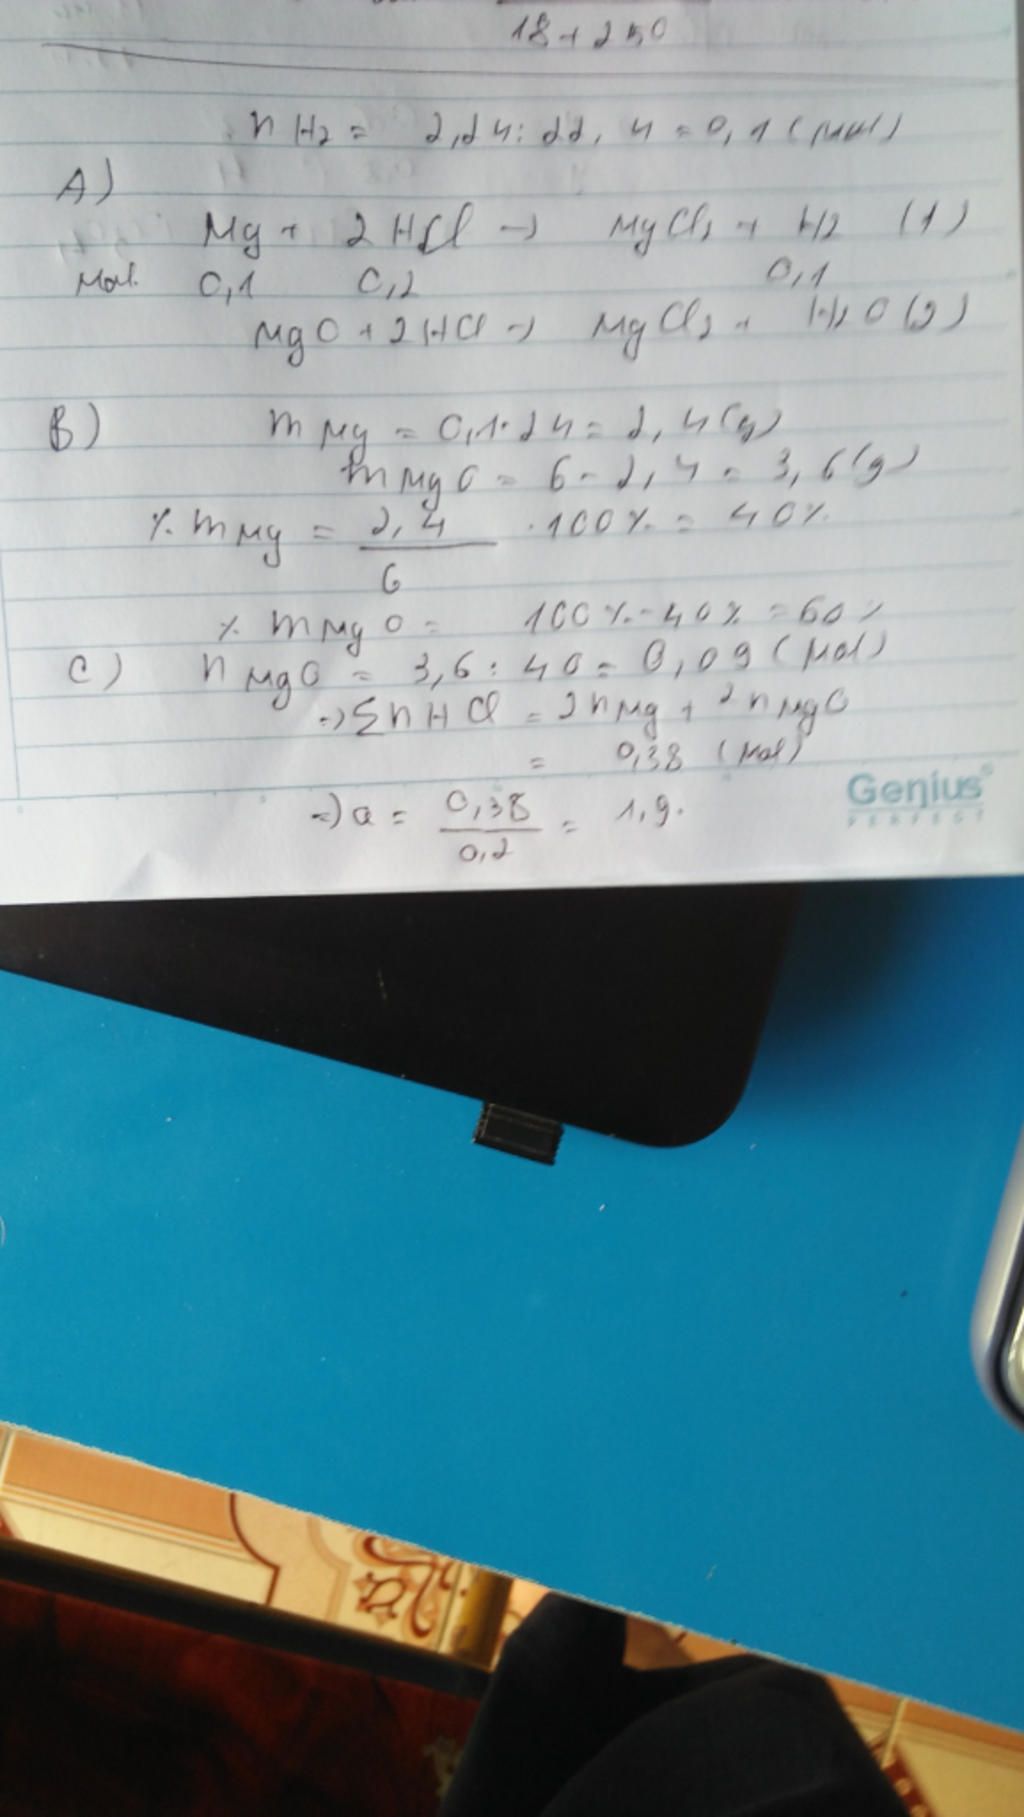 18+250
n H2 = 2,24 : 22,4 = 0,1 (mol)
A)
Mg + 2HCl -> MgCl2 + H2 (1)
Mol. 0,1 0,2 0,1
MgO + 2HCl -> MgCl2 + H2O (2)
B) m Mg = 0,1.24 = 2,4 (g)
m MgO = 6 - 2,4 = 3,6 (g)
% m Mg = 2,4 / 6 . 100% = 40%
% m MgO = 100% - 40% = 60%
C) n MgO = 3,6 : 40 = 0,09 (mol)
=> Σ n HCl = 2 n Mg + 2 n MgO
= 0,38 (mol)
=> a = 0,38 / 0,2 = 1,9.
Genius
PERFECT